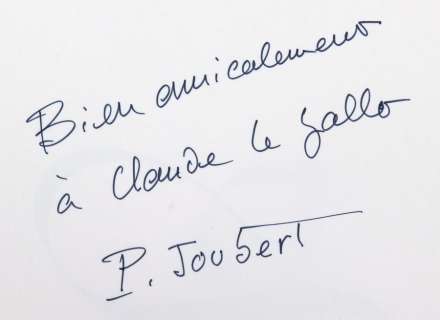 Bien amicalement
à Claude le gallo
P. Joubert